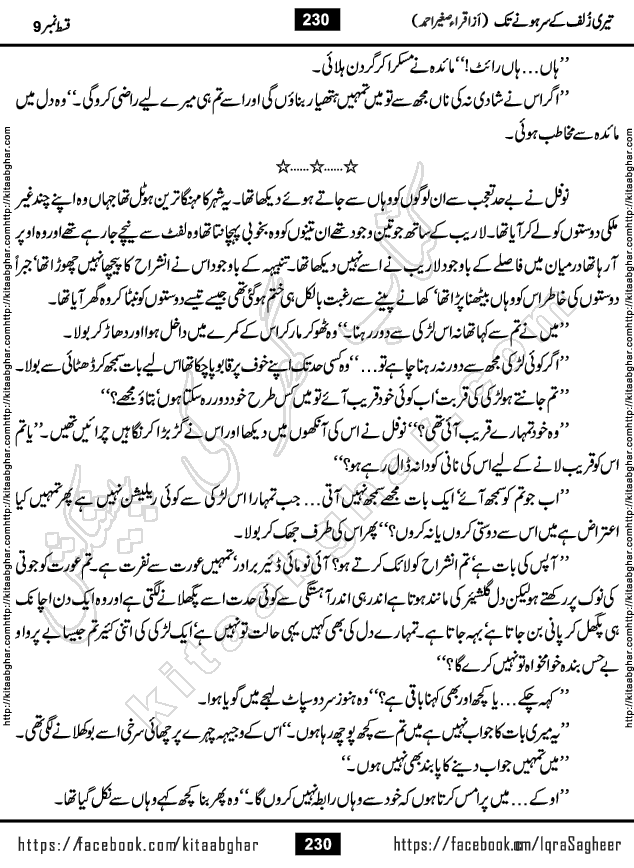 تیری زُلف کے سر ہونے تک (از اقراء صغیر احمد) 230 قسط نمبر 9
’’ہاں… ہاں رائٹ!‘‘ مائدہ نے مسکرا کر گردن ہلائی۔
’’اگر اس نے شادی نہ کی ناں مجھ سے تو میں تمہیں ہتھیار بناؤں گی اور اسے تم ہی میرے لیے راضی کرو گی۔‘‘ وہ دل میں
مائدہ سے مخاطب ہوئی۔
☆……☆……☆
نوفل نے بے حد تعجب سے ان لوگوں کو وہاں سے جاتے ہوئے دیکھا تھا۔ یہ شہر کا مہنگا ترین ہوٹل تھا جہاں وہ اپنے چند غیر
ملکی دوستوں کو لے کر آیا تھا۔ لاریب کے ساتھ جو تین وجود تھے ان تینوں کو وہ بخوبی پہچانتا تھا وہ لفٹ سے نیچے جا رہے تھے اور وہ اوپر
آ رہا تھا درمیان میں فاصلے کے باوجود لاریب نے اسے نہیں دیکھا تھا۔ تنبیہہ کے باوجود اس نے انشراح کا پیچھا نہیں چھوڑا تھا‘ جبراً
دوستوں کی خاطر اس کو وہاں بیٹھنا پڑا تھا‘ کھانے پینے سے رغبت بالکل ہی ختم ہو گئی تھی جیسے تیسے دوستوں کو نبٹا کر وہ گھر آیا تھا۔
’’میں نے تم سے کہا تھا نہ اس لڑکی سے دور رہنا۔‘‘ وہ ٹھوکر مار کر اس کے کمرے میں داخل ہوا اور دھاڑ کر بولا۔
’’اگر کوئی لڑکی مجھ سے دور نہ رہنا چاہے تو…‘‘ وہ کسی حد تک اپنے خوف پر قابو پا چکا تھا اس لیے بات سمجھ کر ڈھٹائی سے بولا۔
’’تم جانتے ہو لڑکی کی قربت‘ اب کوئی خود قریب آئے تو میں کس طرح خود دور رہ سکتا ہوں‘ بتاؤ مجھے؟‘‘
’’وہ خود تمہارے قریب آئی تھی؟‘‘ نوفل نے اس کی آنکھوں میں دیکھا اور اس نے گڑبڑا کر نگاہیں چرائیں تھیں۔ ’’یا تم
اس کو قریب لانے کے لیے اس کی نانی کو دانہ ڈال رہے ہو؟‘‘
’’اب جو تم کو سمجھ آئے‘ ایک بات مجھے سمجھ نہیں آتی… جب تمہارا اس لڑکی سے کوئی ریلیشن نہیں ہے پھر تمہیں کیا
اعتراض ہے میں اس سے دوستی کروں یا نہ کروں؟‘‘ پھر اس کی طرف جھک کر بولا۔
’’آپس کی بات ہے‘ تم انشراح کو لائک کرتے ہو؟ آئی نو مائی ڈئیر برادر‘ تمہیں عورت سے نفرت ہے۔ تم عورت کو جوتی
کی نوک پر رکھتے ہو لیکن دل گلیشئیر کی مانند ہوتا ہے اندر ہی اندر آہستگی سے کوئی حدت اسے پگھلانے لگتی ہے اور وہ ایک دن اچانک
ہی پگھل کر پانی بن جاتا ہے‘ بہہ جاتا ہے۔ تمہارے دل کی بھی کہیں یہی حالت تو نہیں ہے‘ ایک لڑکی کی اتنی کئیر تم جیسا بے پروا و
بے حس بندہ خوامخواہ تو نہیں کرے گا؟‘‘
’’کہہ چکے… یا کچھ اور بھی کہنا باقی ہے؟‘‘ وہ ہنوز سرد و سپاٹ لہجے میں گویا ہوا۔
’’یہ میری بات کا جواب نہیں ہے میں تم سے کچھ پوچھ رہا ہوں۔‘‘ اس کے وجیہہ چہرے پر چھائی سرخی اسے بوکھلانے لگی تھی۔
’’میں تمہیں جواب دینے کا پابند بھی نہیں ہوں۔‘‘
’’اوکے… میں پرامس کرتا ہوں کہ خود سے وہاں رابطہ نہیں کروں گا۔‘‘ وہ پھر بنا کچھ کہے وہاں سے نکل گیا تھا۔
کتاب گھر کی پیشکش
kitaabghar.com
http://kitaabghar.com http://kitaabghar.com http://kitaabghar.com http://kitaabghar.com http://kitaabghar.com
http://kitaabghar.com http://kitaabghar.com http://kitaabghar.com http://kitaabghar.com http://kitaabghar.com
https://facebook.com/kitaabghar 230 https://facebook.com/IqraSagheer